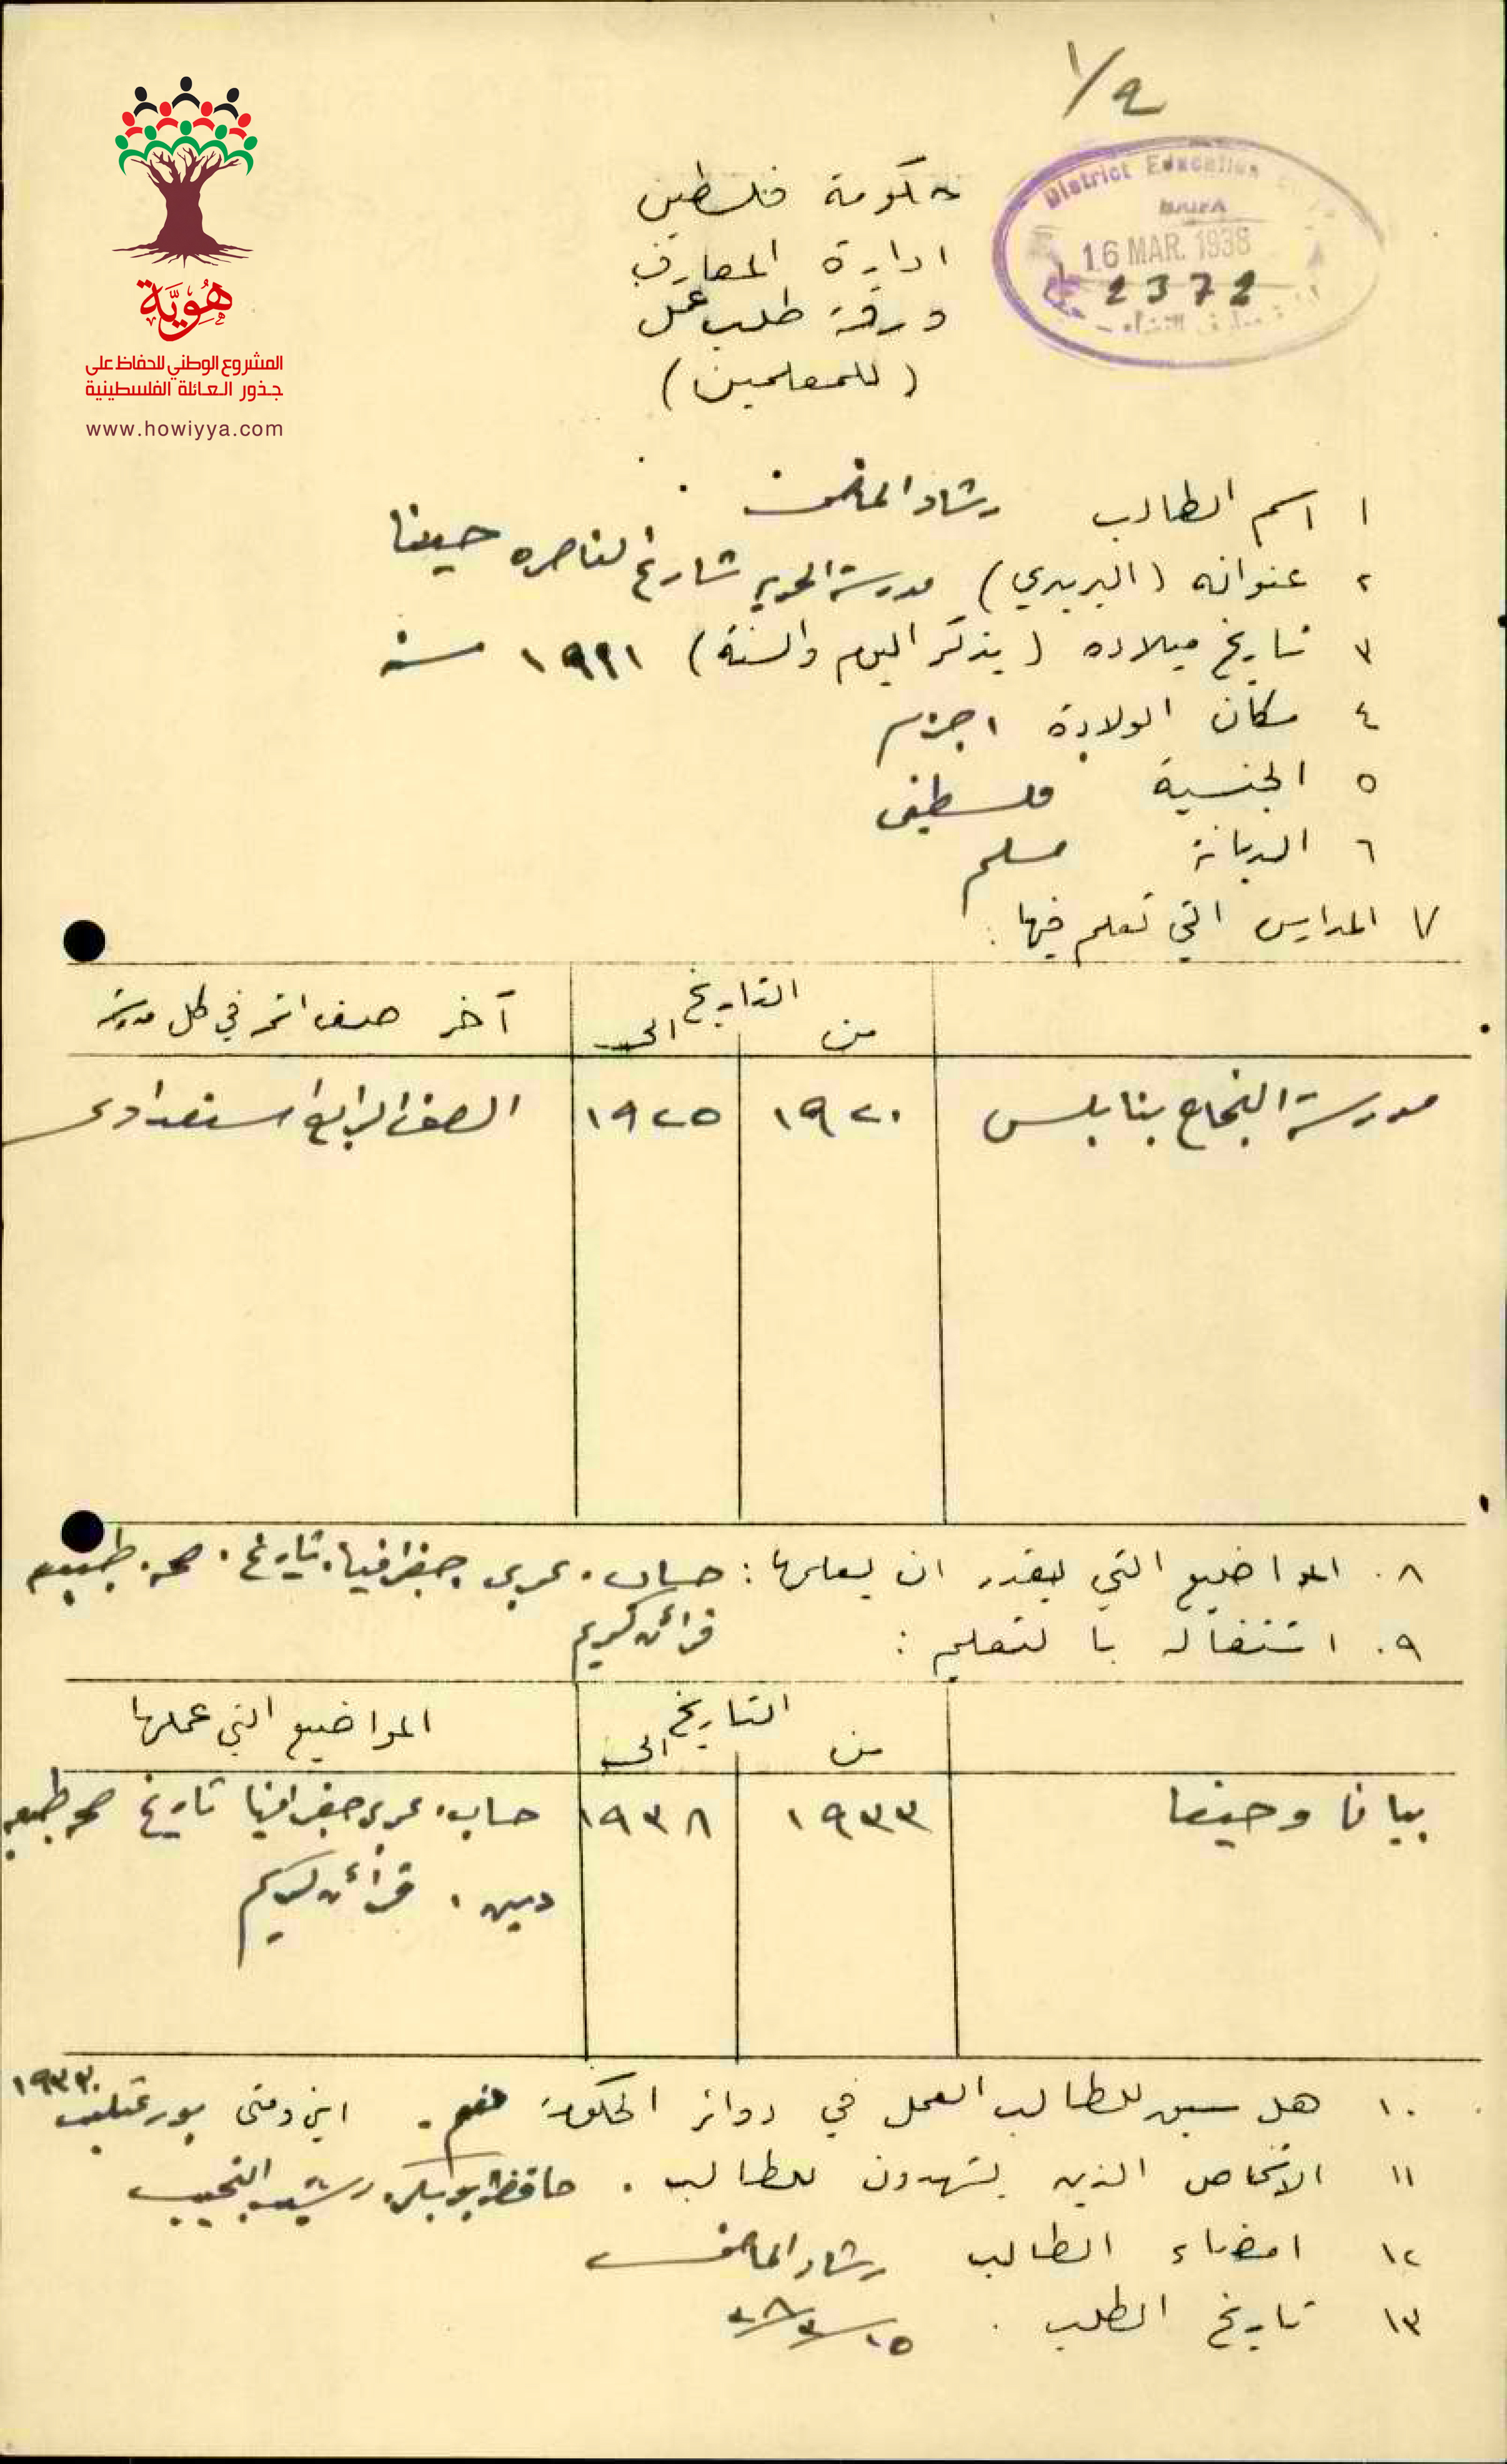 ١/٩
حكومة فلسطين
ادارة المعارف
ورقة طلب عمل
(للمعلمين)
District Education
HAIFA
16 MAR. 1938
2372
هُوِيَّة
المشروع الوطني للحفاظ على
جذور العائلة الفلسطينية
www.howiyya.com
١ اسم الطالب رشاد الماضي
٢ عنوانه (البريدي) مدرسة شارع الناصره حيفا
٣ تاريخ ميلاده (يذكر اليوم والسنة) ١٩١١ سنة
٤ مكان الولادة اجزم
٥ الجنسية فلسطيني
٦ الديانة مسلم
٧ المدارس التي تعلم فيها :
التاريخ
من الى آخر صف اتمه في كل مدرسة
مدرسة النجاح بنابلس ١٩٢٠ ١٩٢٥ الصف الرابع استعدادي
٨. المواضيع التي يقدر ان يعلمها : حساب. عربي. جغرافيا. تاريخ. صحه. طبيعه
قرآن كريم
٩. اشتغاله بالتعليم :
التاريخ
من الى المواضيع التي علمها
وحيفا ١٩٣٣ ١٩٣٨ حساب. عربي جغرافيا تاريخ صحه طبيعه
دين. قرآن كريم
١٠. هل سبق للطالب العمل في دوائر الحكومة نعم. اين ومتى ١٩٣٣
١١ الاشخاص الذين يشهدون للطالب.
١٢ امضاء الطالب رشاد الماضي
١٣ تاريخ الطلب. ١٥/٣/٣٨